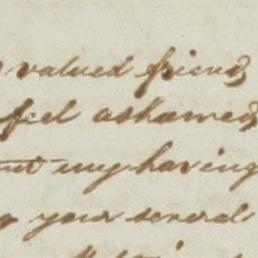 valued friend
feel ashamed
my having
your several